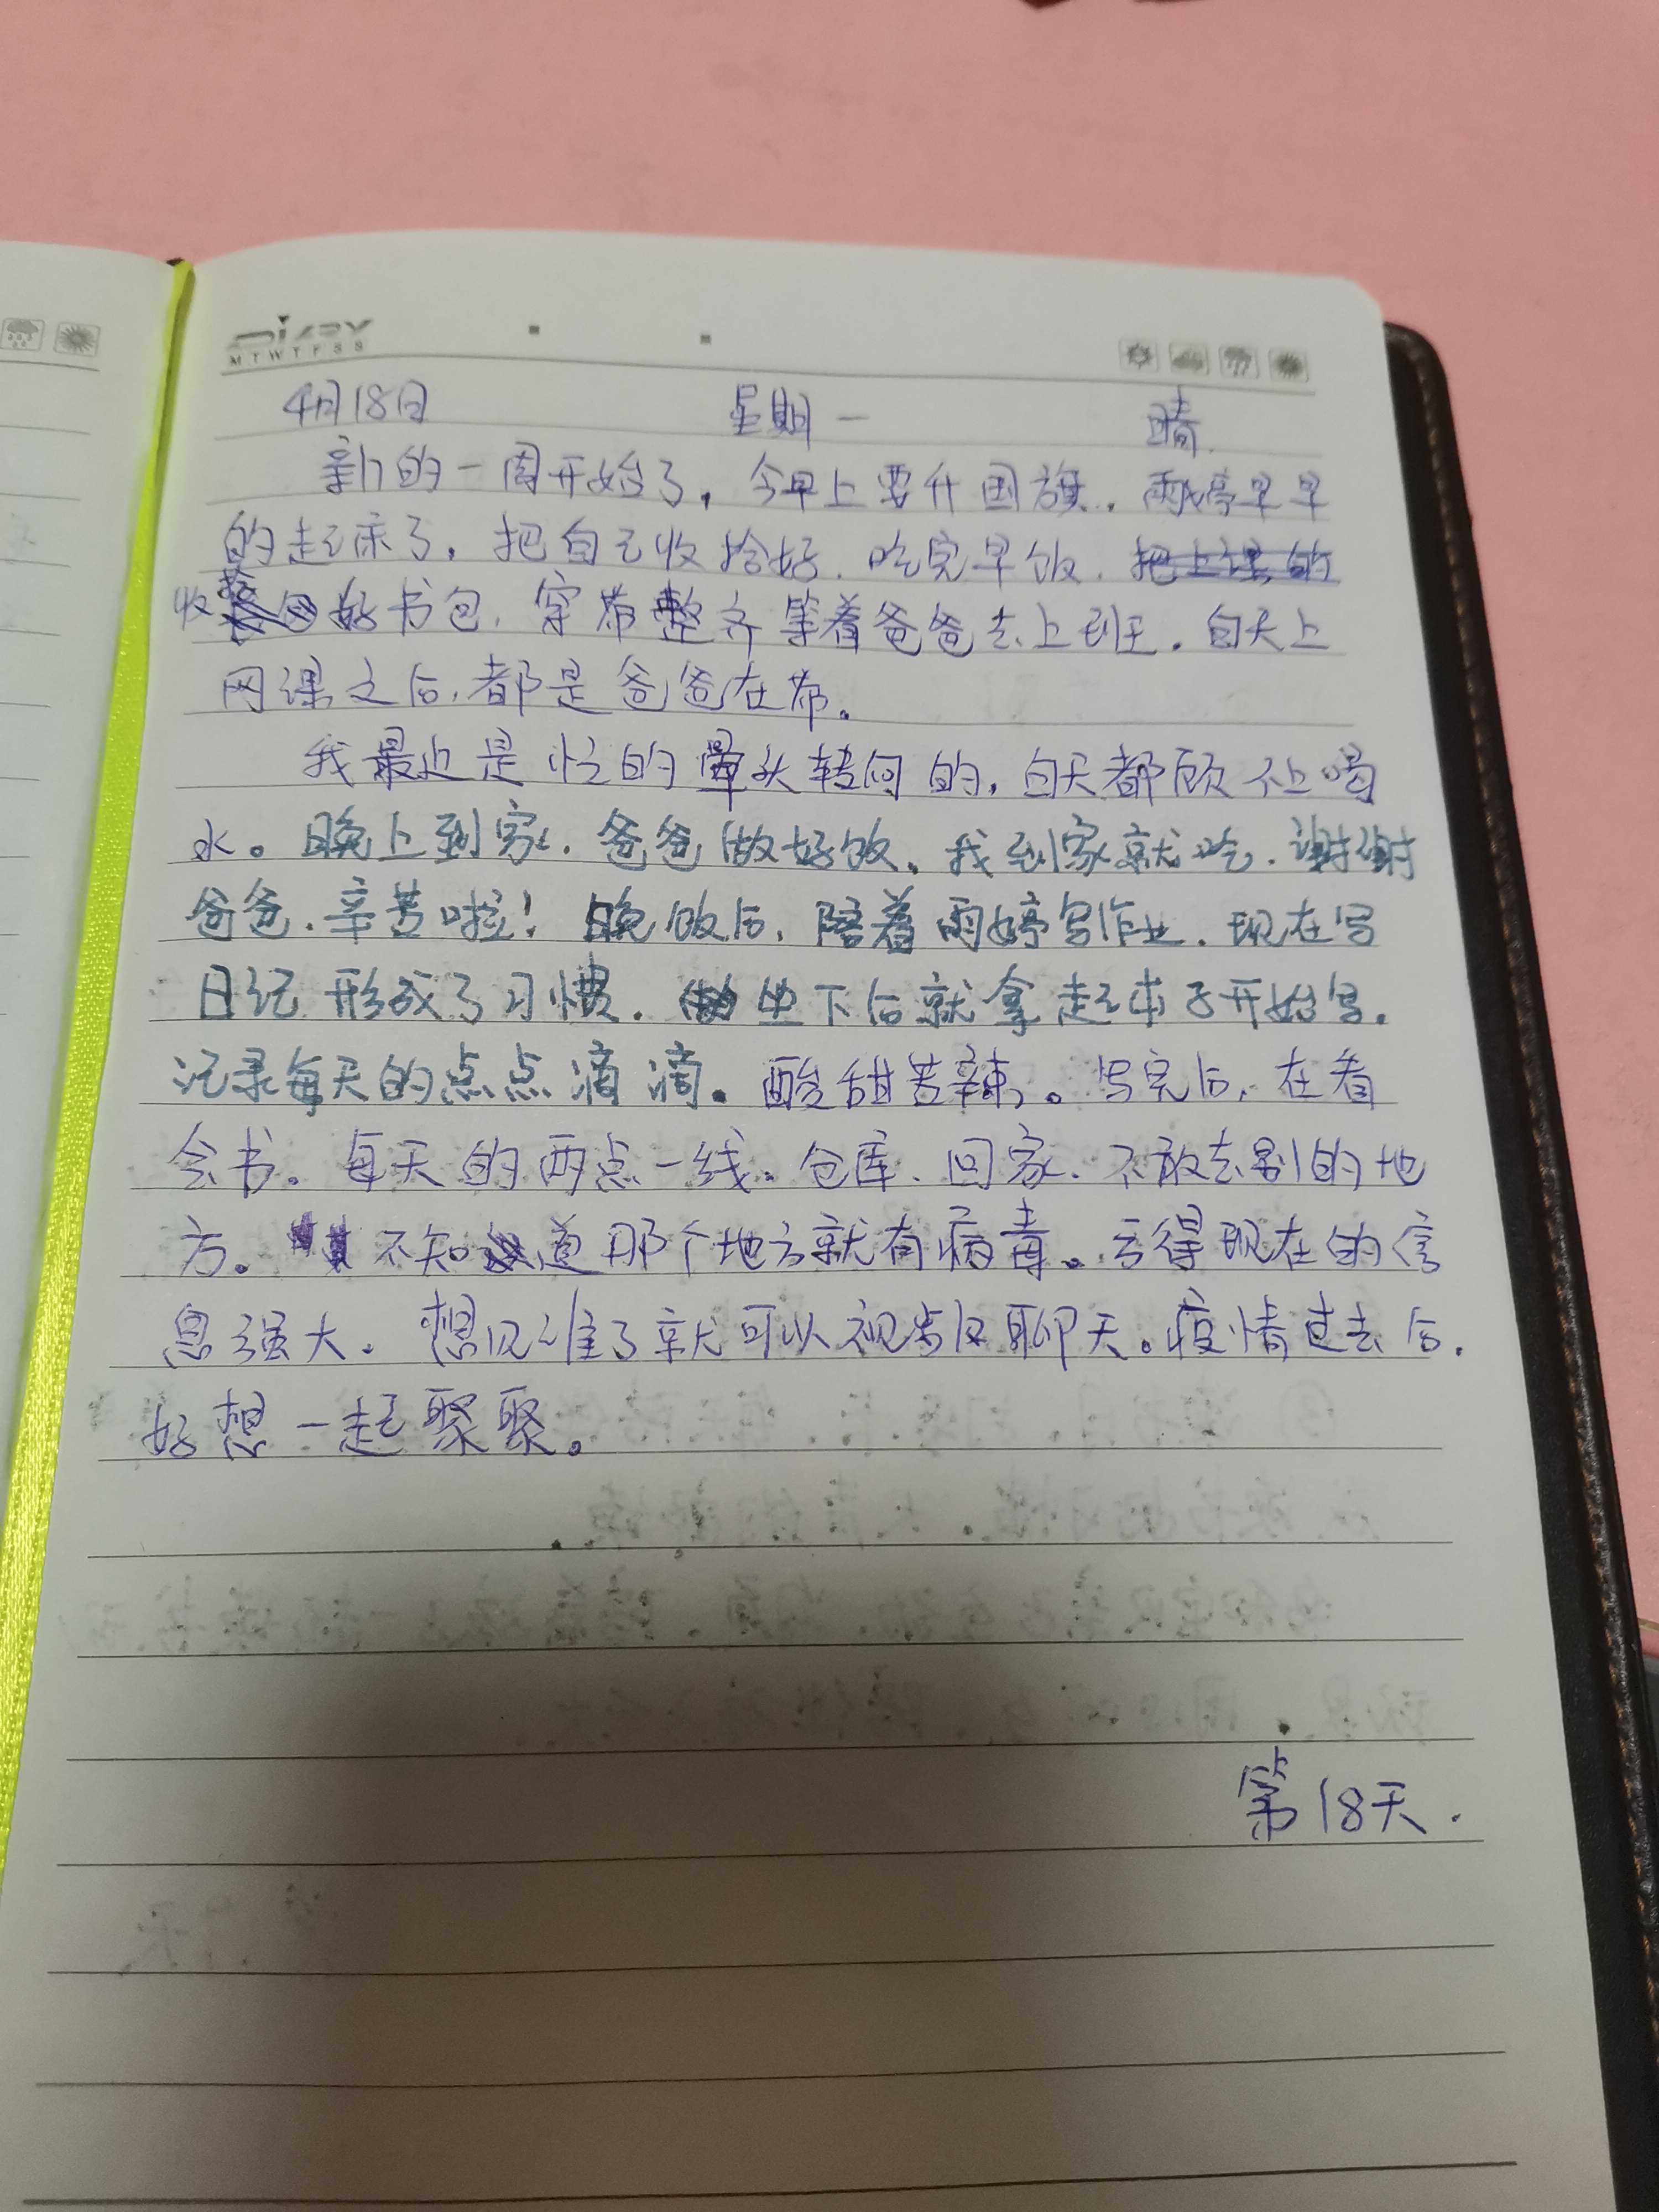 DIARY
M T W T F S S
4月18日 星期一 晴
新的一周开始了，今早上要升国旗，雨婷早早
的起床了，把自己收拾好，吃完早饭，把上课的
收好书包，穿带整齐等着爸爸去上班。白天上
网课之后，都是爸爸在带。
我最近是忙的晕头转向的，白天都顾不上喝
水。晚上到家，爸爸做好饭，我到家就吃，谢谢
爸爸，辛苦啦！晚饭后，陪着雨婷写作业，现在写
日记形成了习惯。坐下后就拿起本子开始写。
记录每天的点点滴滴。酸甜苦辣。写完后，在看
会书。每天的两点一线。仓库、回家、不敢去别的地
方。不知道那个地方就有病毒。亏得现在的信
息强大，想见谁了就可以视频聊天。疫情过去后，
好想一起聚聚。
第18天.